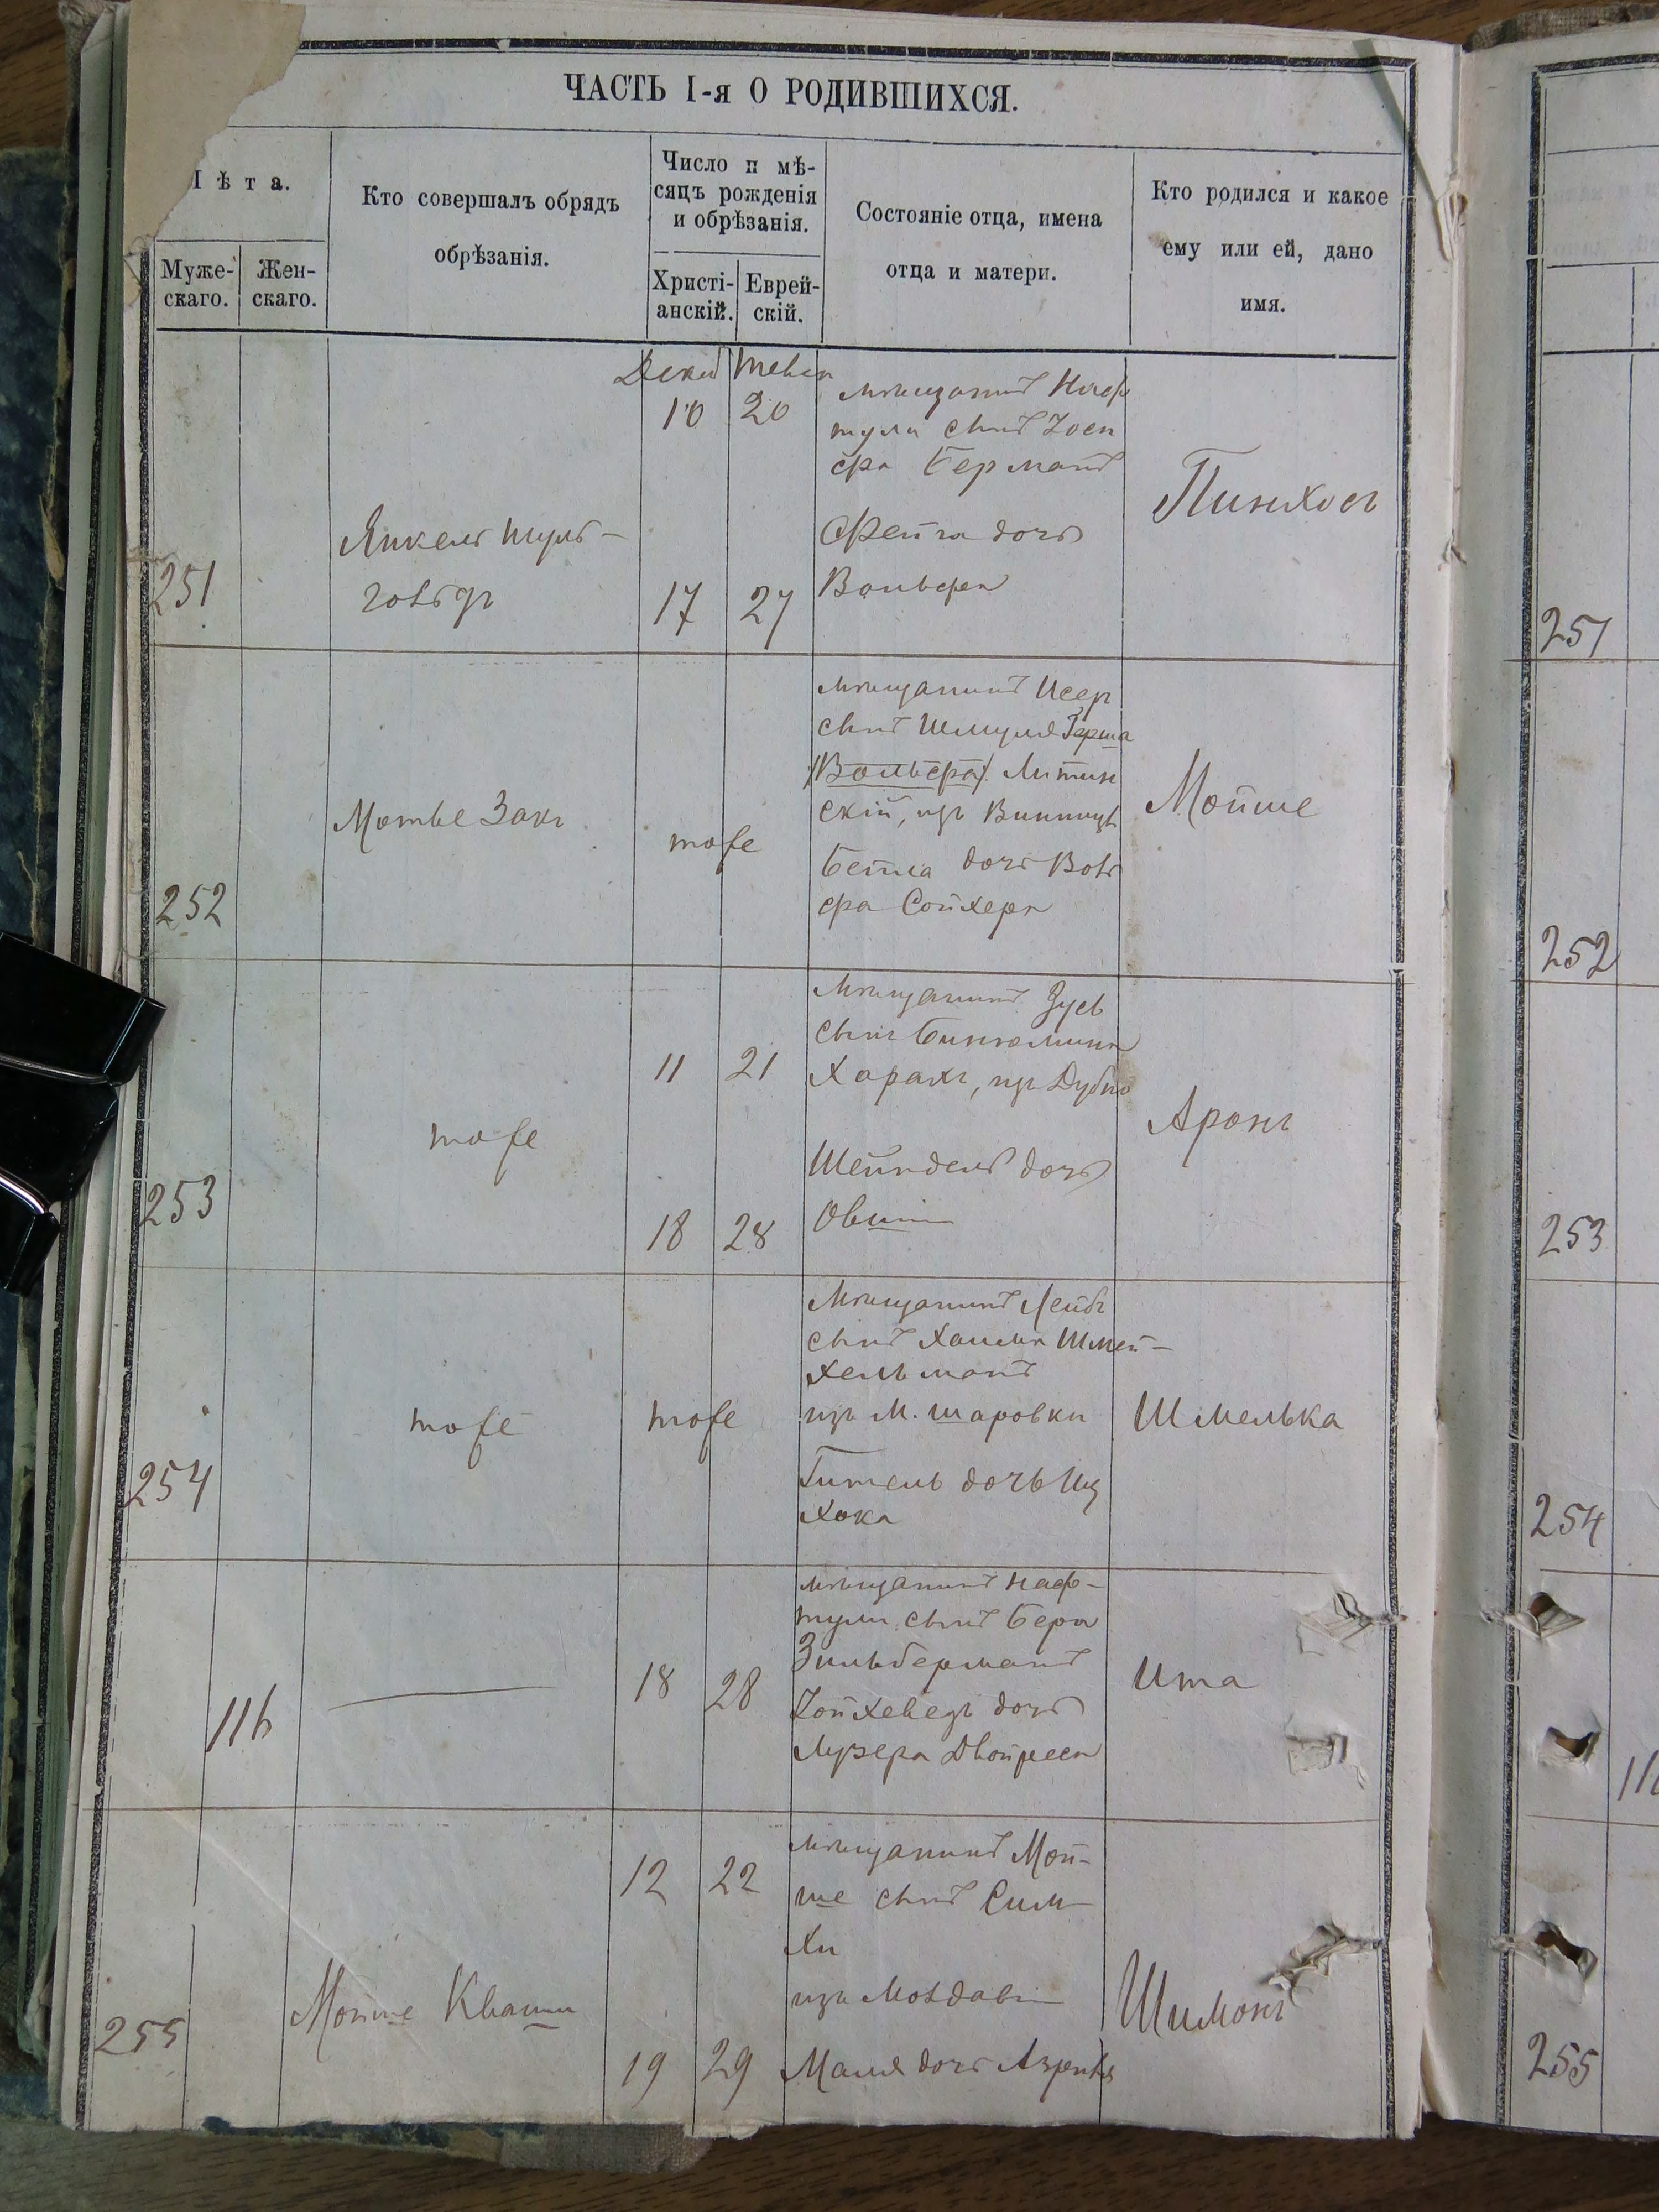 ЧАСТЬ I-я О РОДИВШИХСЯ.
ѣта.
Муже-
скаго.
Жен-
скаго.
Кто совершалъ обрядъ
обрѣзанія.
Число и мѣ-
сяцъ рожденія
и обрѣзанія.
Христі-
анскій.
Еврей-
скій.
Состояніе отца, имена
отца и матери.
Кто родился и какое
ему или ей, дано
имя.
251
Янкель Шуль-
Декаб
10
17
20
27
мѣщанинъ Наф
тули сынъ Іосе
фа Берманъ
Фейга дочь
Вольфа
Пинхосъ
251
252
Мотье Закъ
тоже
мѣщанинъ Исеръ
сынъ Шмуля Герша
/Вольфа/ Литин
скій, изъ Винницы
Бейла дочь Воль
фа Сойхера
Мойше
252
253
тоже
11
18
21
28
Мѣщанинъ Зусь
сынъ Биньомина
Харахъ, изъ Дубно
Шейндель дочь
Аронъ
253
254
тоже
тоже
Мѣщанинъ Лейбъ
сынъ Хаима Шмей-
хельманъ
изъ М. Шаровки
Гитель дочь Иц
хока
Шмелька
254
116
18
28
мѣщанинъ Наф-
тули сынъ Бера
Зильберманъ
Іойхеведъ дочь
Лузера
Ита
255
Мойше Кваша
12
19
22
29
мѣщанинъ Мой-
ше сынъ Сим-
хи
изъ
Маля дочь
Шимонъ
255